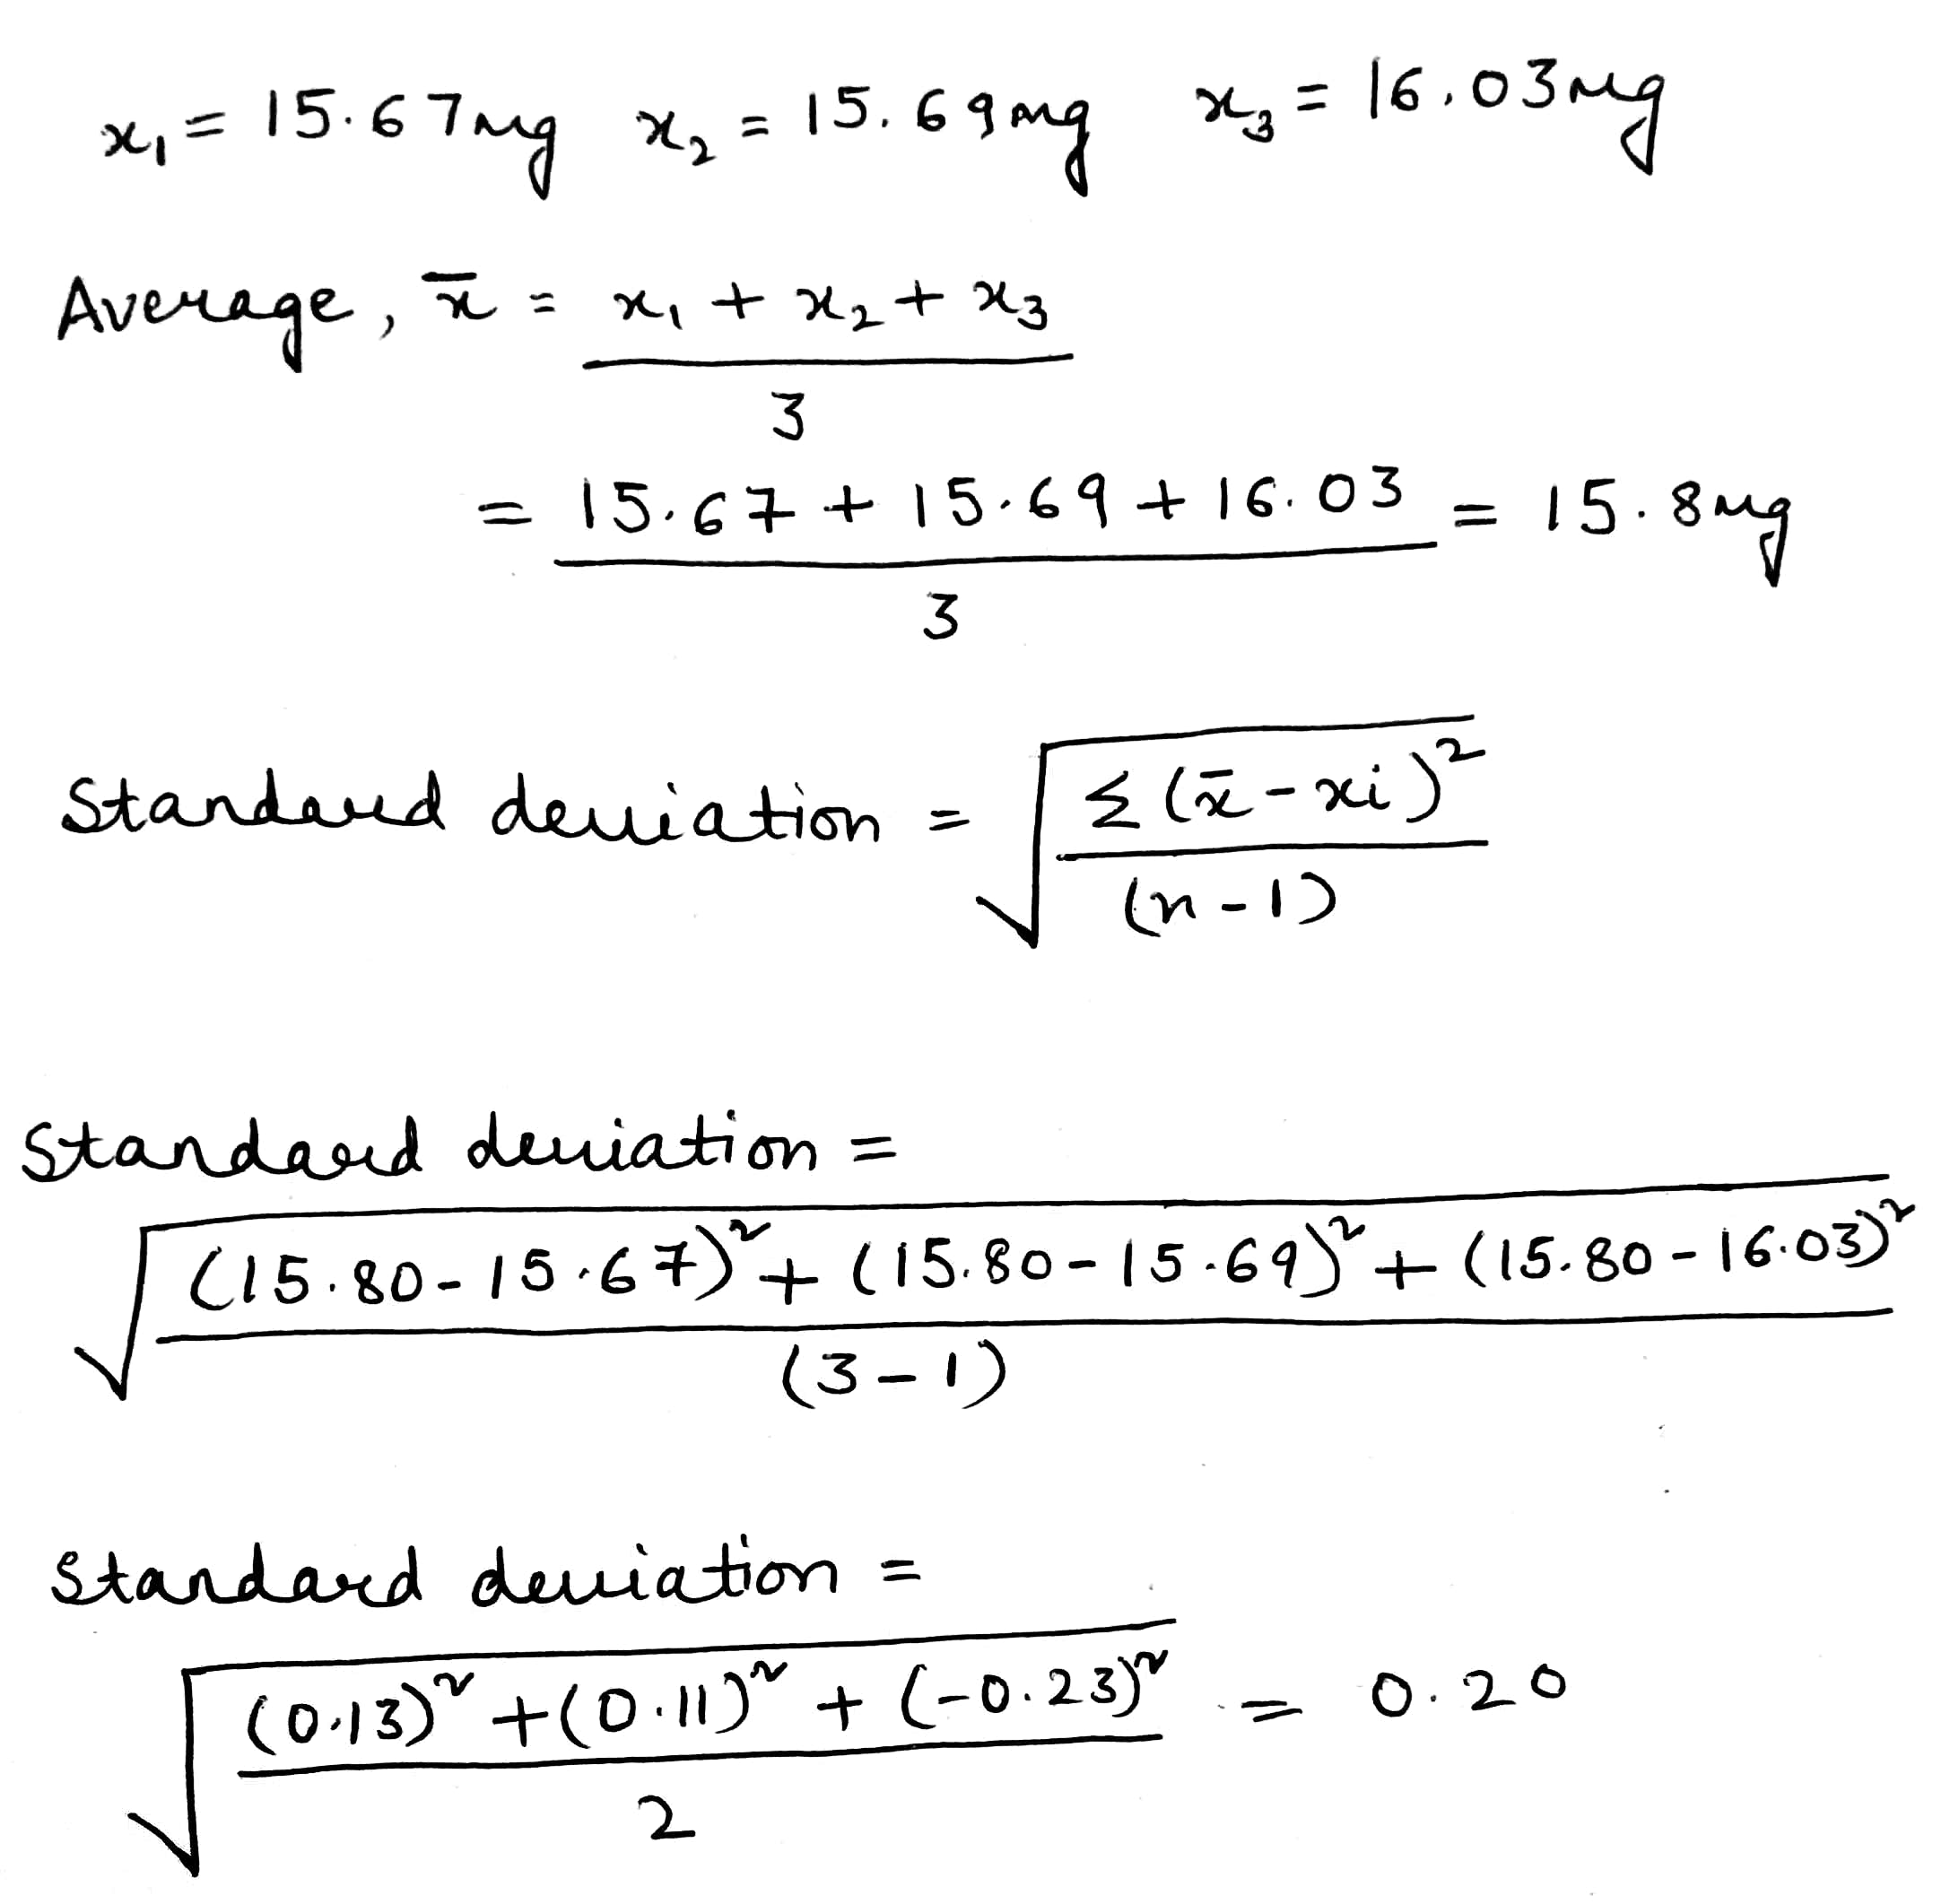 x₁ = 15.67mg x₂ = 15.69mg x₃ = 16.03mg
Average, x̄ = x₁ + x₂ + x₃
3
= 15.67 + 15.69 + 16.03 = 15.8mg
3
Standard deviation = √ Σ (x̄ - xi)²
(n - 1)
Standard deviation =
√ (15.80 - 15.67)² + (15.80 - 15.69)² + (15.80 - 16.03)²
(3 - 1)
Standard deviation =
√ (0.13)² + (0.11)² + (-0.23)² = 0.20
2